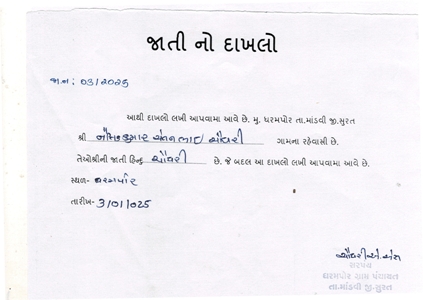 જાતી નો દાખલો
જા.નં: 03/2025
આથી દાખલો લખી આપવામા આવે છે. મુ. ધરમપોર તા.માંડવી જી.સુરત
શ્રી ચૌધરી ગામના રહેવાસી છે.
તેઓશ્રીની જાતી હિન્દુ ચૌધરી છે. જે બદલ આ દાખલો લખી આપવામાં આવે છે.
સ્થળ- ધરમપોર
તારીખ- 3/01/025
સરપંચ
ધરમપોર ગ્રામ પંચાયત
તા.માંડવી જી.સુરત